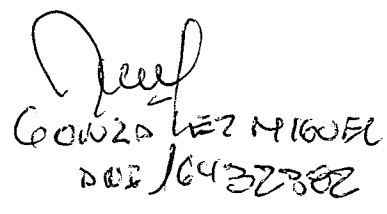 GONZALEZ MIGUEL
DNI 16432882